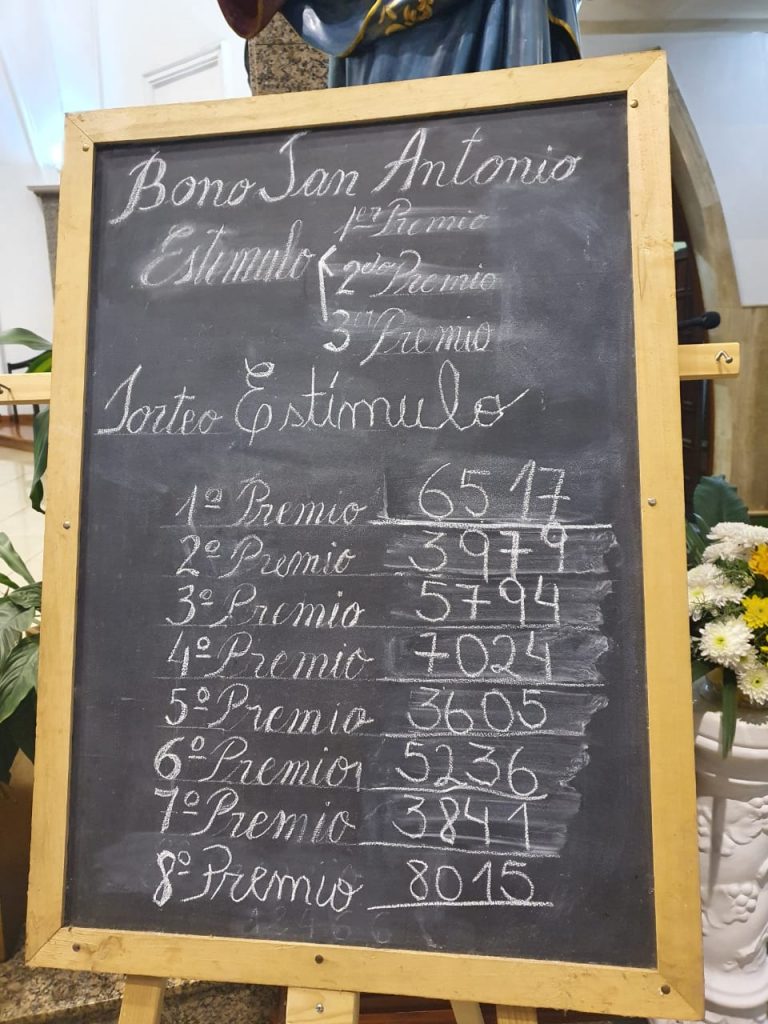 Bono San Antonio
Estemulo
1er Premio
2do Premio
3er Premio
Sorteo Estímulo
1º Premio 6517
2º Premio 3979
3º Premio 5794
4º Premio 7024
5º Premio 3605
6º Premio 5236
7º Premio 3841
8º Premio 8015